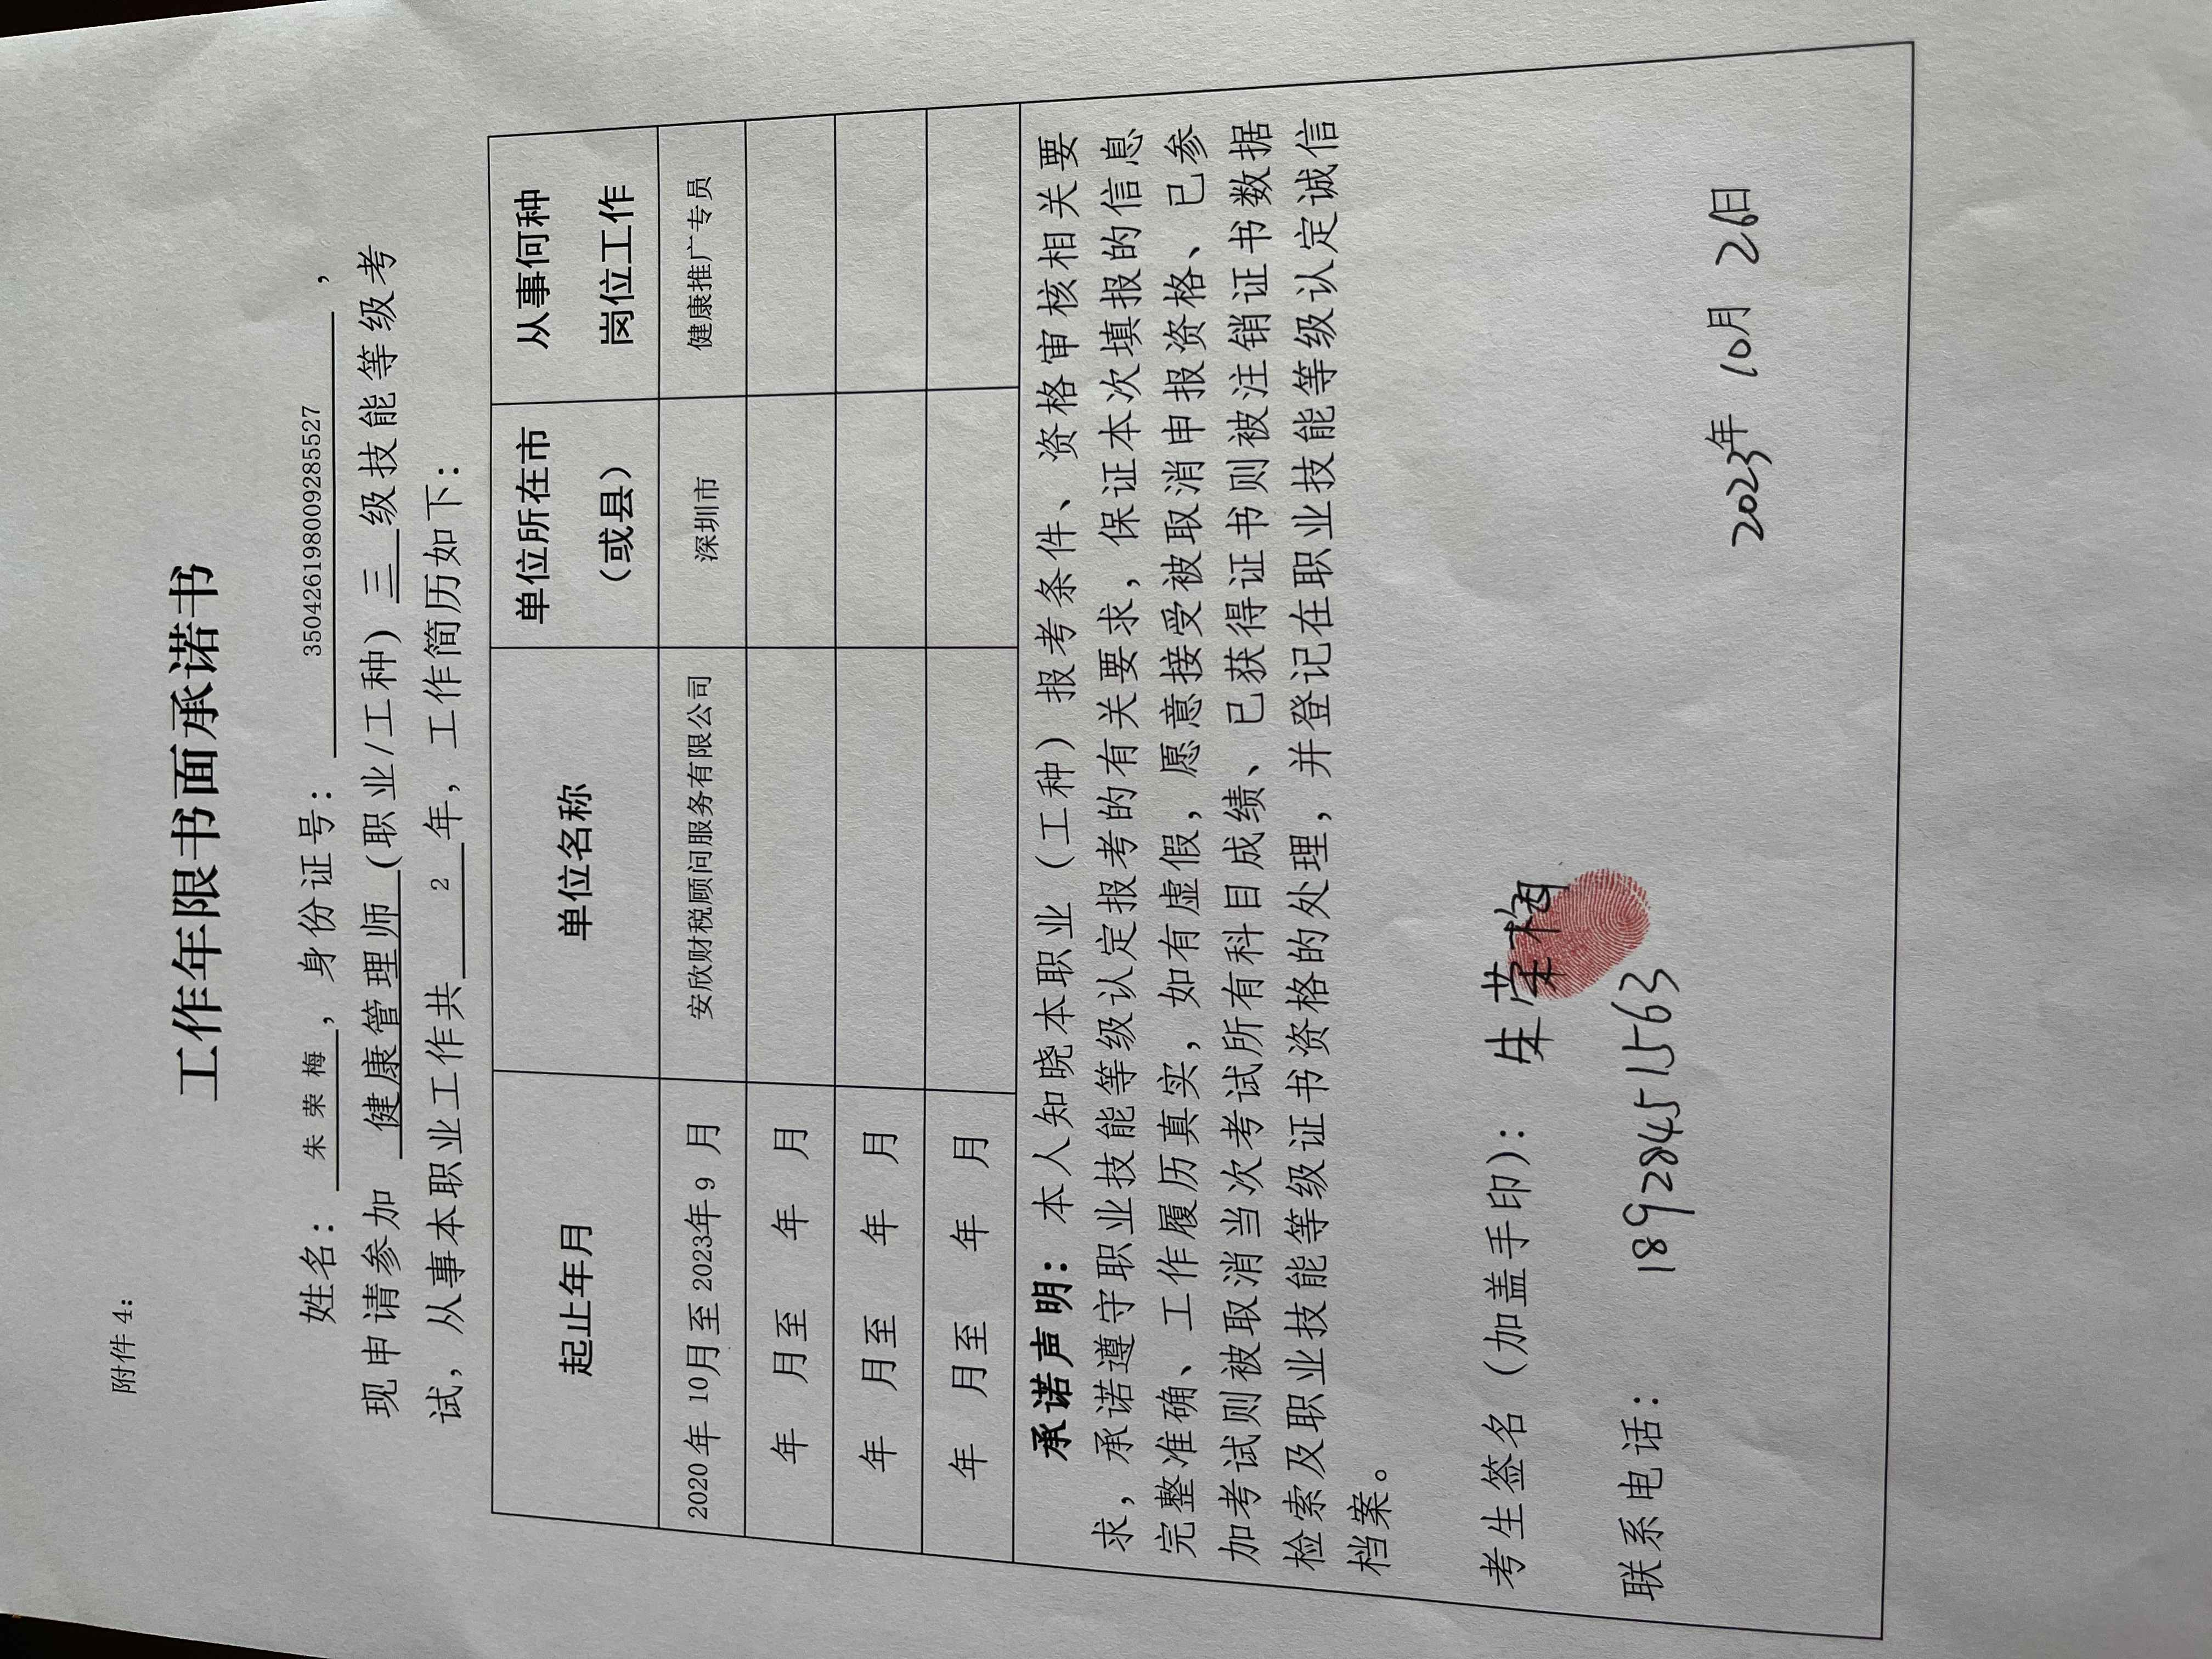 附件 4：
工作年限书面承诺书
姓名：朱荣梅，身份证号：350426198009285527，
现申请参加 健康管理师（职业/工种）三 级技能等级考
试，从事本职业工作共 2 年，工作简历如下：
起止年月 单位名称 单位所在市（或县） 从事何种岗位工作
2020 年 10月至 2023年 9 月 安欣财税顾问服务有限公司 深圳市 健康推广专员
年 月至 年 月
年 月至 年 月
年 月至 年 月
承诺声明：本人知晓本职业（工种）报考条件、资格审核相关要
求，承诺遵守职业技能等级认定报考的有关要求，保证本次填报的信息
完整准确、工作履历真实，如有虚假，愿意接受被取消申报资格、已参
加考试则被取消当次考试所有科目成绩、已获得证书则被注销证书数据
检索及职业技能等级证书资格的处理，并登记在职业技能等级认定诚信
档案。
考生签名（加盖手印）：朱荣梅
联系电话：18928451563
2023年 10月 26日